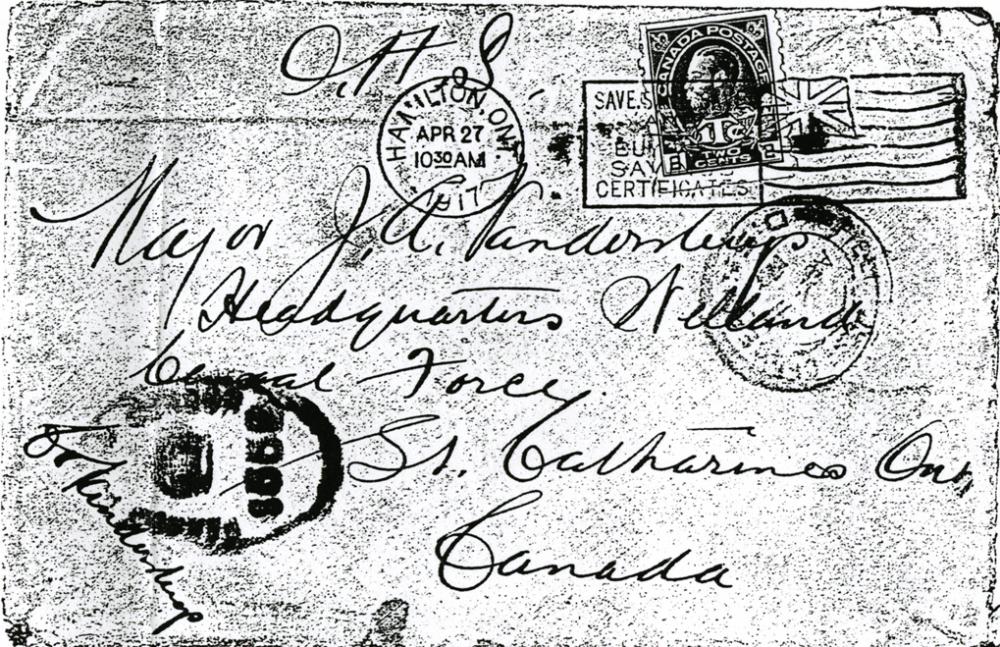 O.H.S
HAMILTON, ONT.
APR 27
10 30 AM
1917
SAVE
BU
SAV
CERTIFICATES
CANADA POSTAGE
1TC
CENTS
Major J. A. Vandersluys
Headquarters Welland
Canal Force
St. Catharines Ont,
Canada